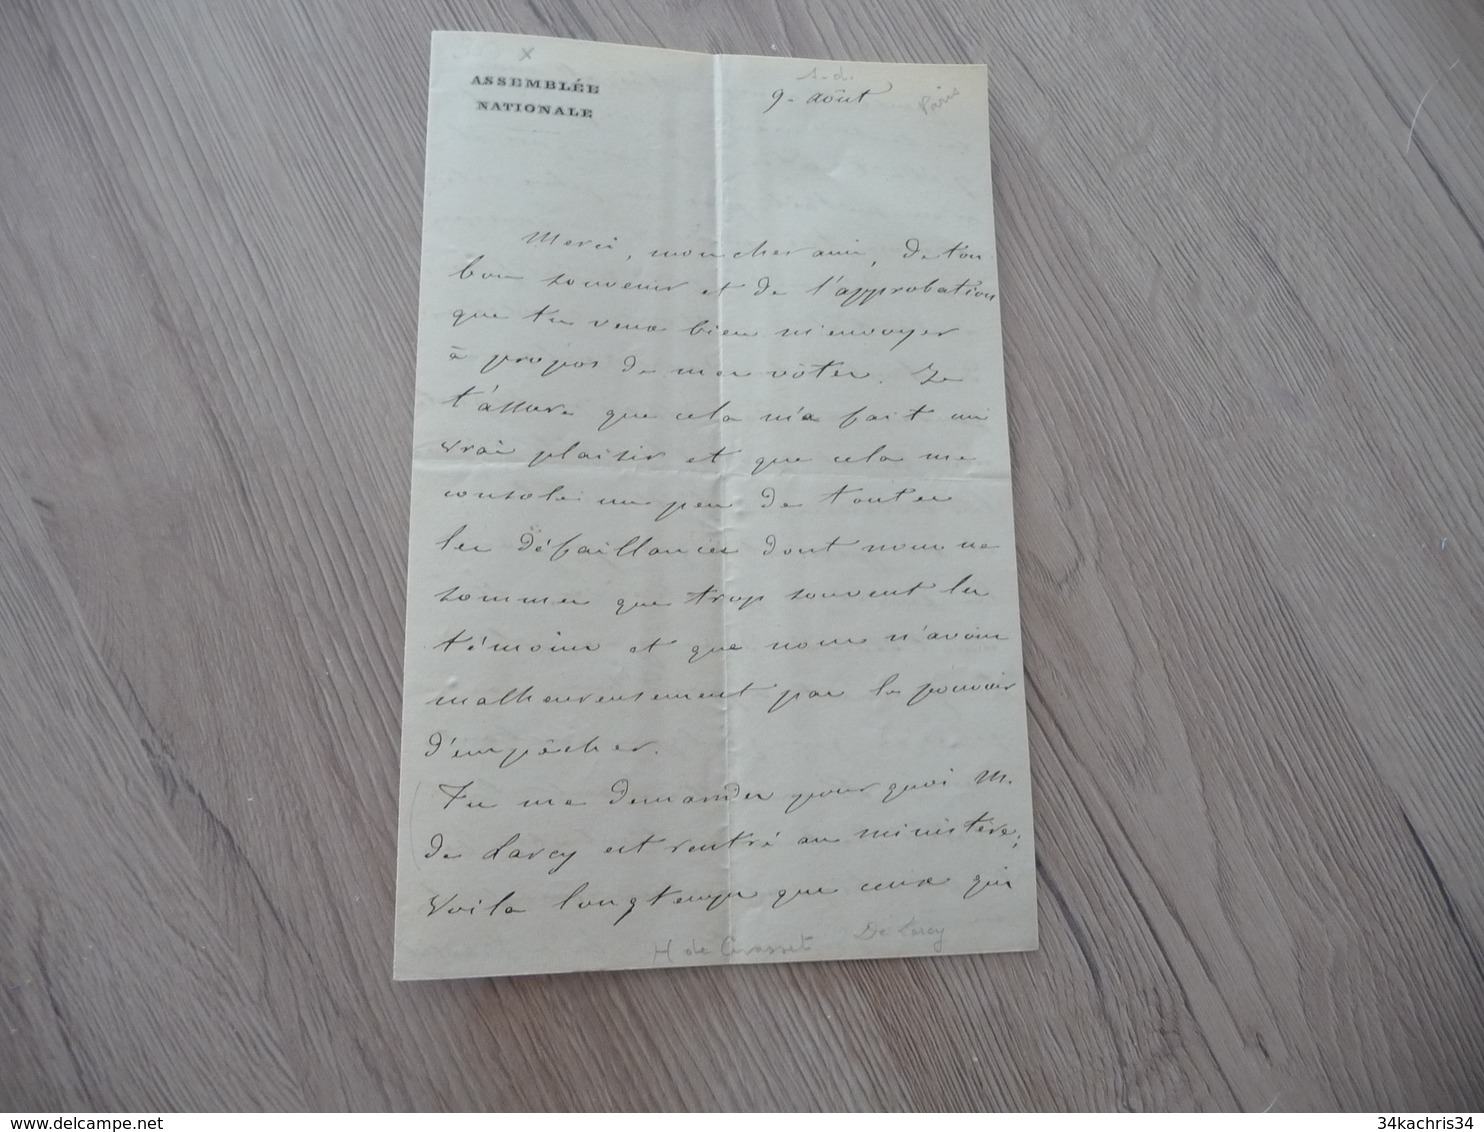 x
ASSEMBLÉE
NATIONALE
s-d.
9- août
Paris
Merci, mon cher ami, de ton
bon souvenir et de l'approbation
que tu veux bien m'envoyer
à propos de mes vôtes. Je
t'assure que cela m'a fait un
vrai plaisir et que cela me
console un peu de toutes
les défaillances dont nous ne
sommes que trop souvent les
témoins et que nous n'avons
malheureusement pas le pouvoir
d'empêcher.
Tu me demandes pourquoi M.
de Larcy est rentré au ministère;
Voila longtemps que ceux qui
H de Grasset
De Larcy
delcampe.net
34kachris34